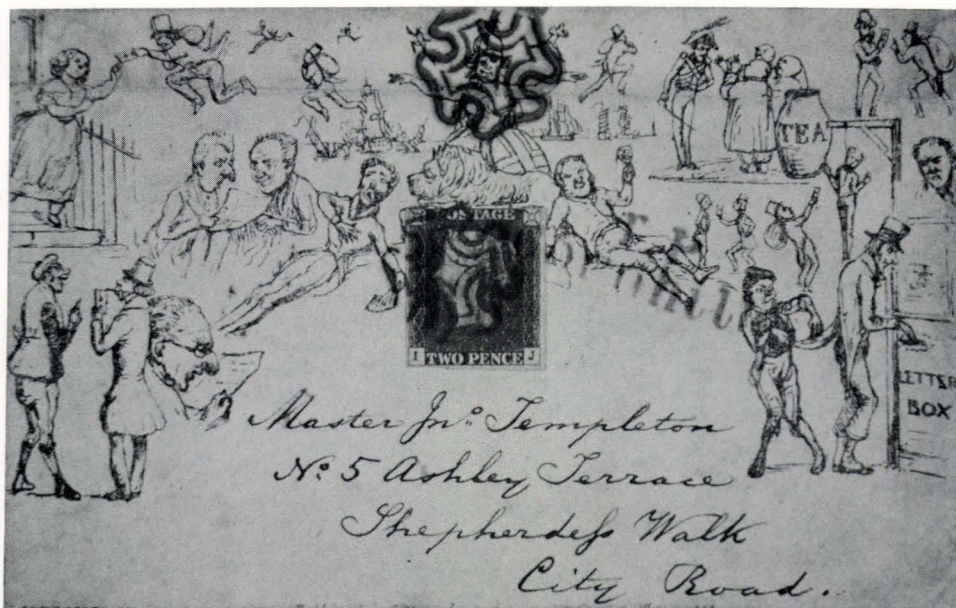 TEA
POSTAGE
I TWO PENCE J
LETTER
BOX
Master Jnº. Templeton
Nº. 5 Ashley Terrace
Shepherdeſs Walk
City Road.